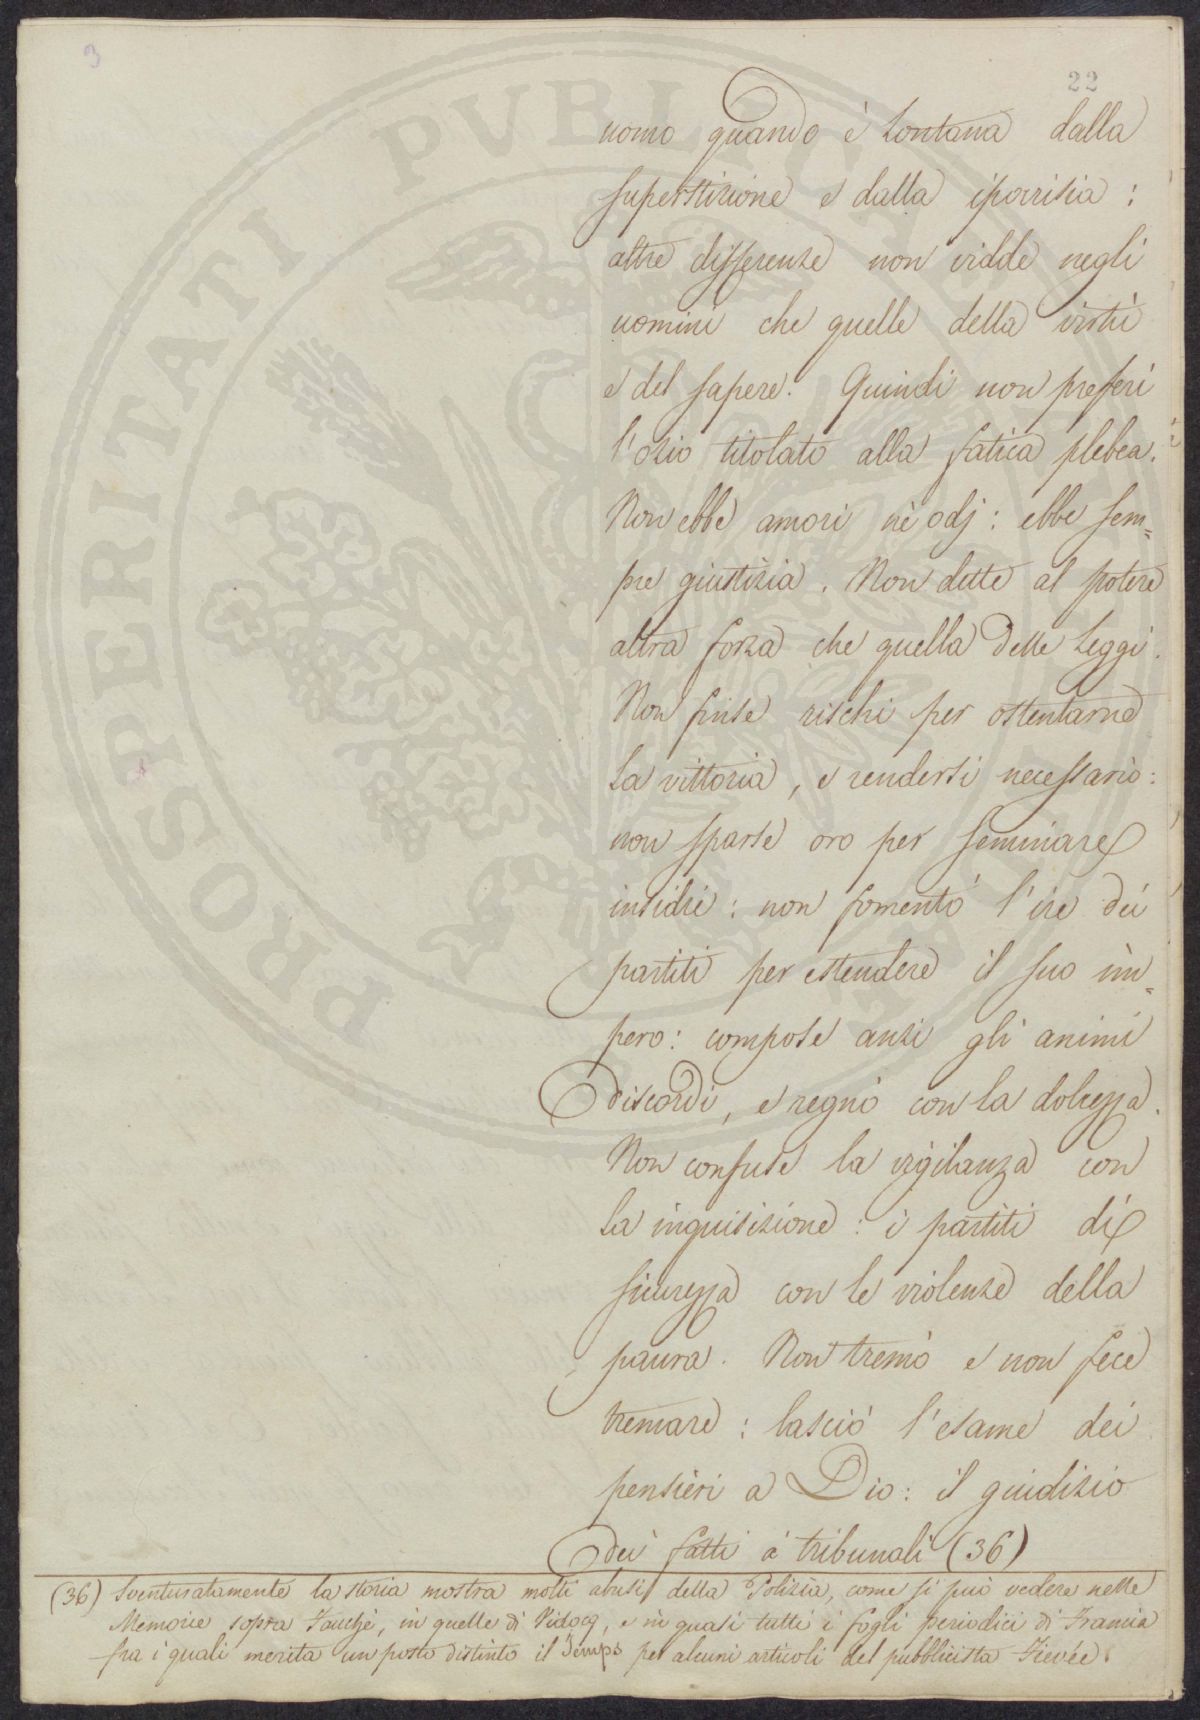 3
22
uomo quando è lontana dalla
superstizione e dalla ipocrisia :
altre differenze non vidde negli
uomini che quelle della virtù
e del sapere. Quindi non preferì
l'ozio titolato alla fatica plebea.
Non ebbe amori nè odj : ebbe sem=
pre giustizia. Non dette al potere
altra forza che quella delle Leggi.
Non finse rischi per ostentarne
la vittoria, e rendersi necessario :
non sparse oro per seminare
insidie : non fomentò l'ire dei
partiti per estendere il suo im=
pero : compose anzi gli animi
discordi, e regnò con la dolcezza.
Non confuse la vigilanza con
la inquisizione : i partiti di
sicurezza con le violenze della
paura. Non tremò e non fece
tremare : lasciò l'esame dei
pensieri a Dio : il giudizio
dei fatti a' tribunali (36)
(36) Sventuratamente la storia mostra molti abusi della Polizia, come si può vedere nelle
Memorie sopra Fouchè, in quelle di Vidocq, e in quasi tutti i fogli periodici di Francia
fra i quali merita un posto distinto il Temps per alcuni articoli del pubblicista Fievée.
PROSPERITATI PVBLICAE